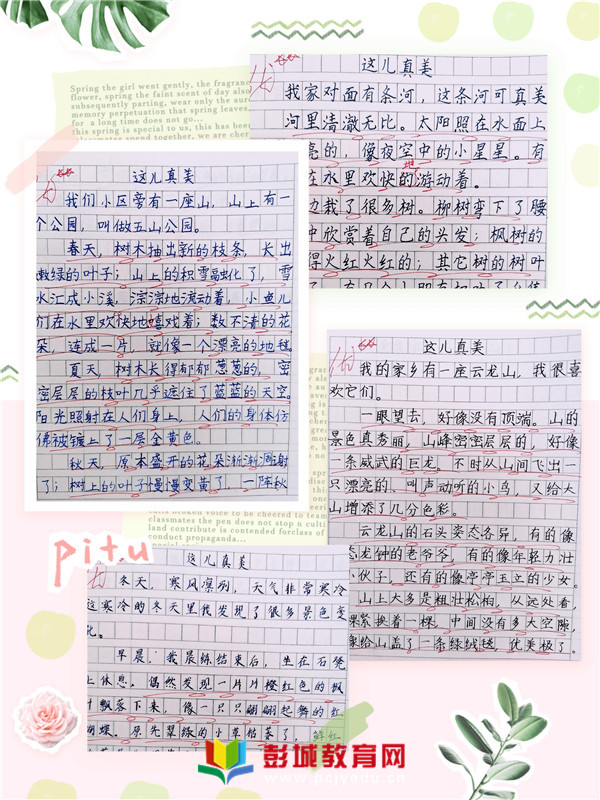 Spring the girl went gently, the fragrance
flower, spring the faint scent of day also
subsequently parting, wear only the
memory perpetuation that spring leaves
for a long time does not go...
this spring is special to us, this has been
优
这儿真美
我家对面有条河，这条河可真美
河里清澈无比。太阳照在水面上
亮的，像夜空中的小星星。有
在水里欢快的游动着。
边栽了很多树。柳树弯下了腰
中欣赏着自己的头发；枫树的
得火红火红的；其它树的树叶
优
这儿真美
我们小区旁有一座山，山上有一
个公园，叫做五山公园。
春天，树木抽出新的枝条，长出
嫩绿的叶子；山上的积雪融化了，雪
水汇成小溪，淙淙地流动着，小鱼儿
们在水里欢快地嬉戏着；数不清的花
朵，连成一片，就像一个漂亮的地毯
夏天，树木长得郁郁葱葱的，密
密层层的枝叶几乎遮住了蓝蓝的天空。
阳光照射在人们身上，人们的身体仿
佛被镀上了一层金黄色。
秋天，原本盛开的花朵渐渐凋谢
了；树上的叶子慢慢变黄了，一阵秋
优
这儿真美
我的家乡有一座云龙山，我很喜
欢它们。
一眼望去，好像没有顶端。山的
景色真秀丽，山峰密密层层的，好像
一条威武的巨龙，不时从山间飞出一
只漂亮的、叫声动听的小鸟，又给大
山增添了几分色彩。
云龙山的石头姿态各异，有的像
态龙钟的老爷爷，有的像年轻力壮
小伙子，还有的像亭亭玉立的少女。
山上大多是粗壮松柏，从远处看，
棵紧挨着一棵，中间没有多大空隙，
像给山盖了一条绿绒毯，优美极了。
broken voice to be cheered to team
classmates the pen does not stop n culti
land contribute is contended forclass of
conduct propaganda...
pitu
优
这儿真美
冬天，寒风凛冽，天气非常寒冷
这寒冷的冬天里我发现了很多景色变
化。
早晨，我晨练结束后，坐在石凳
上休息。偶然发现一片片橙红色的枫
叶飘落下来，像一只只翩翩起舞的红
蝴蝶。原先翠绿的小草枯萎了，鲜红
彭城教育网
www.pcjyedu.cn